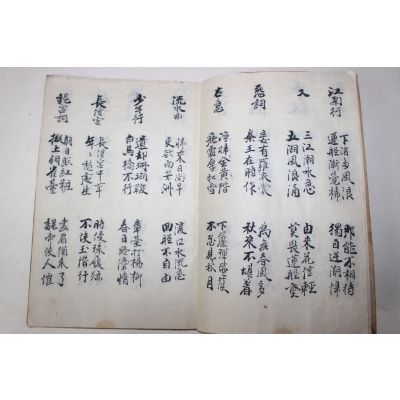 江南行
下渚多風浪
蓮船漸覺稀
那能不相待
獨自逆潮歸
又
三江潮水急
五湖風浪湧
由来花性輕
莫畏蓮船重
怨詞
妾有羅衣裳
秦王在時作
為舞春風多
秋来不堪著
古意
淨掃金黃階
飛霜皎如雪
下簾彈箜篌
不忍見秋月
流水曲
歸来日尚早
更欲向芳洲
渡口水流急
回船不自由
少年行
遺却珊瑚鞭
白馬驕不行
章臺折楊柳
春日路傍情
長信宮
長信宮中草
年々愁處生
時侵珠履跡
不使玉階行
魏宮詞
朝日照紅粧
擬上銅雀臺
畫眉猶未了
魏帝使人催